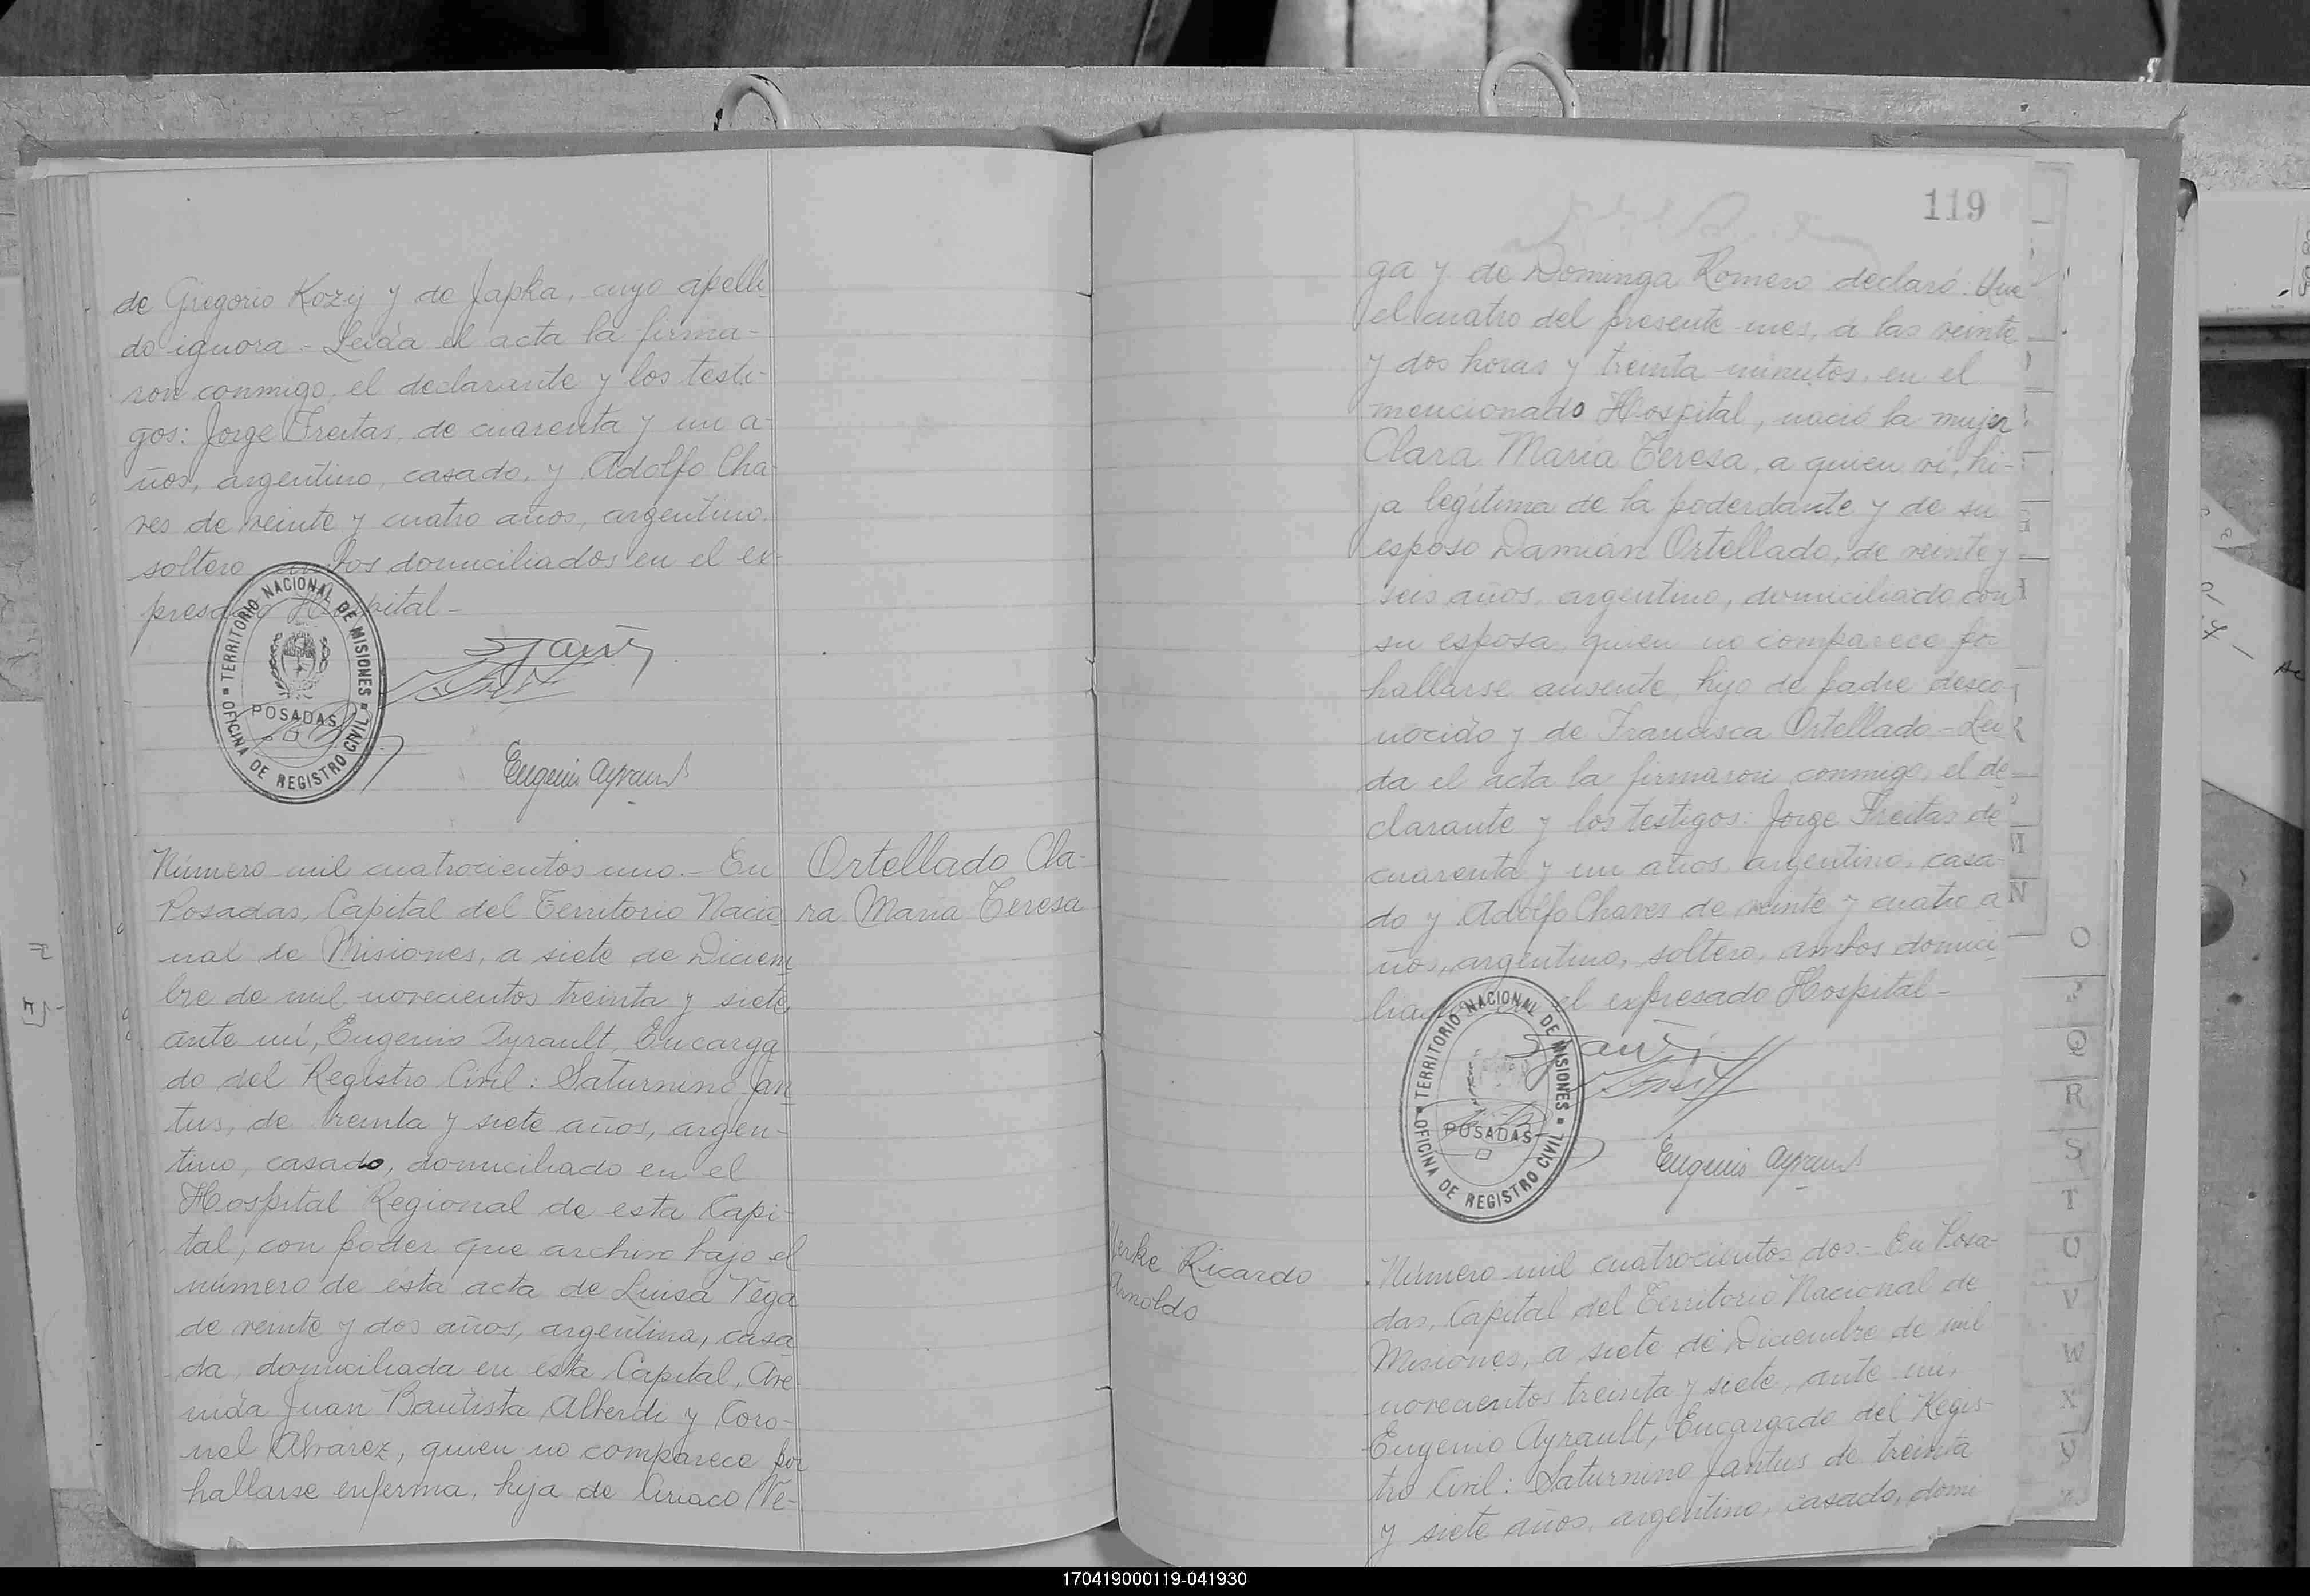 de Gregorio Kozij y de Japka, cuyo apelli-
do ignora - Leída el acta la firma-
ron conmigo, el declarante y los testi-
gos: Jorge Freitas, de cuarenta y un a-
ños, argentino, casado, y Adolfo Cha-
ves de veinte y cuatro años, argentino,
soltero ambos domiciliados en el ex-
presado Hospital -
TERRITORIO NACIONAL DE MISIONES
POSADAS
OFICINA DE REGISTRO CIVIL
Eugenio Ayrault
Número mil cuatrocientos uno. - En
Posadas, Capital del Territorio Nacio
nal de Misiones, a siete de Diciem
bre de mil novecientos treinta y siete,
ante mí, Eugenio Ayrault, Encarga
do del Registro Civil: Saturnino Jan
tus, de treinta y siete años, argen-
tino, casado, domiciliado en el
Hospital Regional de esta Capi-
tal, con poder que archivo bajo el
número de esta acta de Luisa Vega
de veinte y dos años, argentina, casa
da, domiciliada en esta Capital, Ave-
nida Juan Bautista Alberdi y Coro-
nel Alvarez, quien no comparece por
hallarse enferma, hija de Ciriaco Ve-
Ortellado Cla-
ra María Teresa
119
ga y de Dominga Romero declaró: Que
el cuatro del presente mes, a las veinte
y dos horas y treinta minutos, en el
mencionado Hospital, nació la mujer
Clara María Teresa, a quien ví, hi-
ja legítima de la poderdante y de su
esposo Damián Ortellado, de veinte y
seis años, argentino, domiciliado con
su esposa, quien no comparece por
hallarse ausente, hijo de padre desco-
nocido y de Francisca Ortellado - Leí
da el acta la firmaron conmigo, el de-
clarante y los testigos: Jorge Freitas de
cuarenta y un años, argentino, casa-
do y Adolfo Chaves de veinte y cuatro a
ños, argentino, soltero, ambos domici-
el expresado Hospital -
TERRITORIO NACIONAL DE MISIONES
POSADAS
OFICINA DE REGISTRO CIVIL
Eugenio Ayrault
Ricardo
Arnoldo
Número mil cuatrocientos dos. - En Posa-
das, Capital del Territorio Nacional de
Misiones, a siete de Diciembre de mil
novecientos treinta y siete, ante mí,
Eugenio Ayrault, Encargado del Regis-
tro Civil: Saturnino Jantus de treinta
y siete años, argentino, casado, domi
M
N
O
Q
R
S
T
U
V
W
X
Y
170419000119-041930